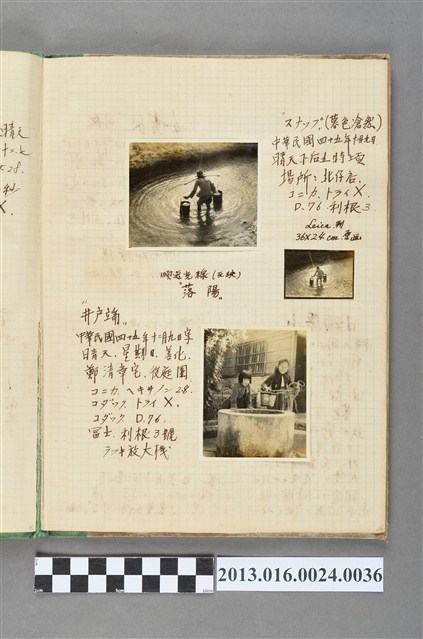 "スナップ"(暮色滄然)
中華民國四十五年十月九日
晴天下后五時
場所:北仔店
コニカ.トライX.
D.76 利根3
Leica.判
36X24 cm
逆光線(反映)
"落陽"
"井戸端"
中華民國四十五年十一月九日
日晴天.星期日.善化.
鄭清章宅.後庭園
コニカ.ヘキサノン28.
コダック.トライX.
コダック.D.76.
冨士.利根3號
ラッキ放大機
晴天
28.
X.
2013.016.0024.0036